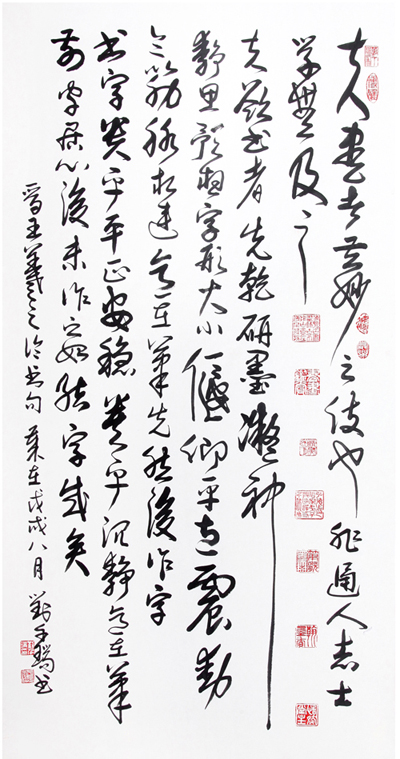 夫人書者玄妙之伎也非通人志士
学無及之
夫欲書者先乾研墨凝神
靜思預想字形大小偃仰平直震動
令筋脉相連意在筆先然後作字
書字貴乎平正安穩貴乎沉靜意在筆
前字居心後未作之始結字成矣
王羲之論書句 歲在戊戌八月 書